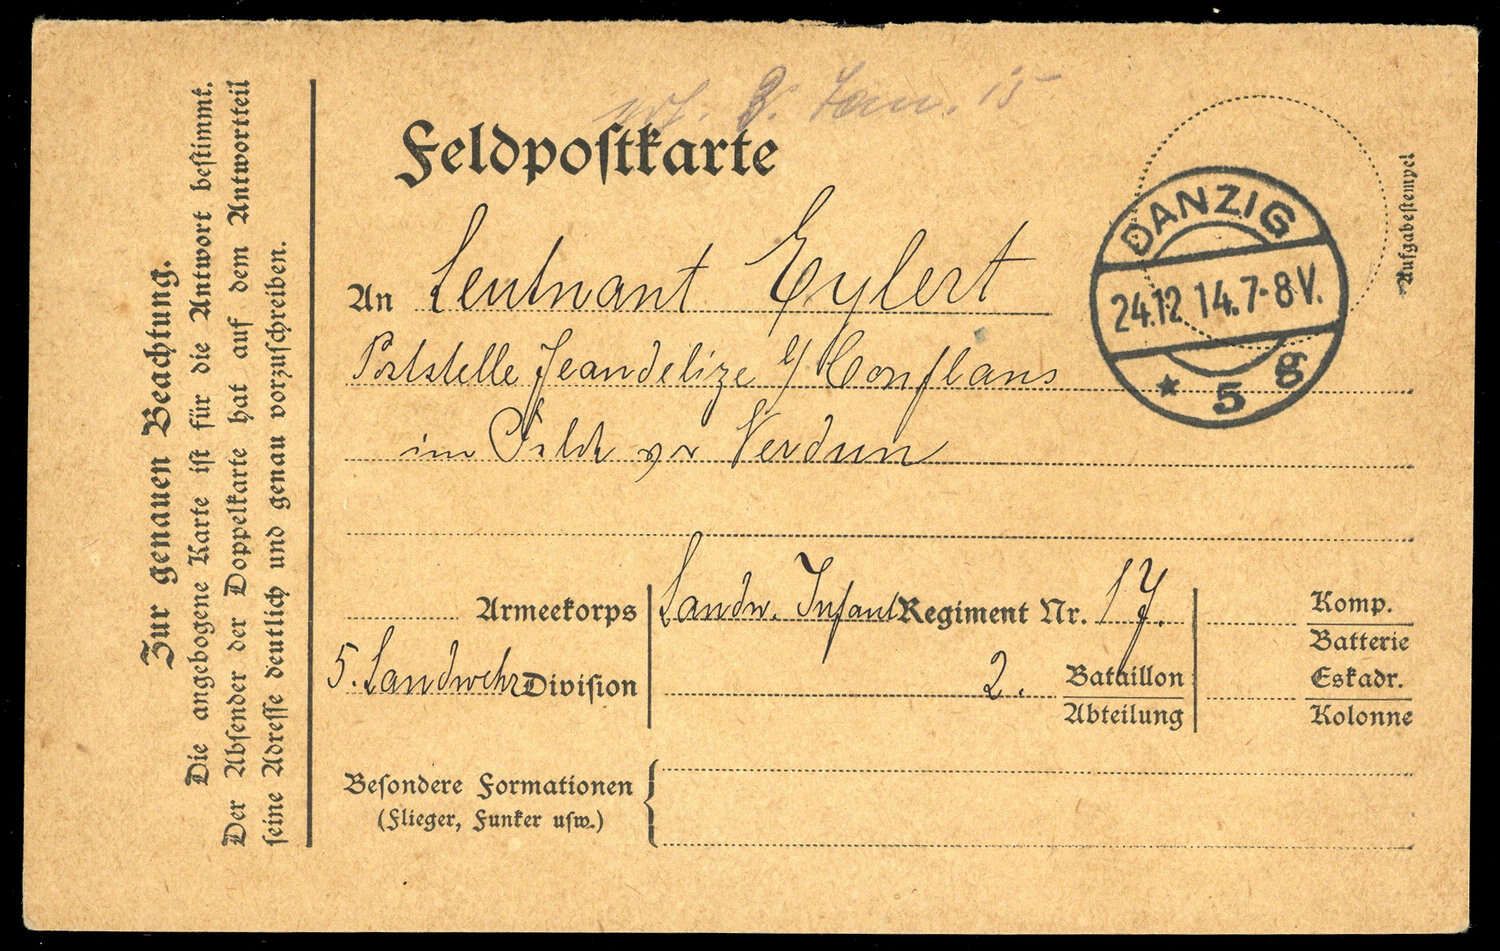 Zur genauen Beachtung.
Die angebogene Karte ist für die Antwort bestimmt.
Der Absender der Doppelkarte hat auf dem Antwortteil
seine Adresse deutlich und genau vorzuschreiben.
3. Jan. 15
Feldpostkarte
Aufgabestempel
DANZIG
24.12 14.7-8V.
* 5 g
An Leutnant Eylert
Poststelle Jeandelize b/ Conflans
im Felde vor Verdun
Armeekorps
Landw. Infant Regiment Nr. 17.
Komp.
Batterie
5. Landwehr Division
2. Bataillon
Abteilung
Eskadr.
Kolonne
Besondere Formationen
(Flieger, Funker usw.)